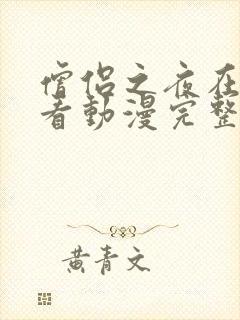 僧侶之夜在
看動漫完整
黃青文